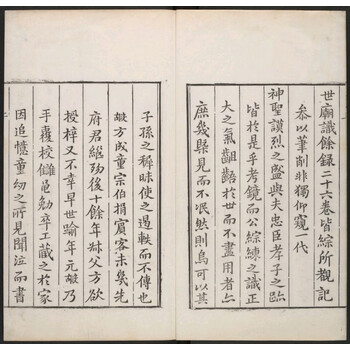 世廟識餘錄二十六卷皆綜所覩記
叅以筆削非獨仰窺一代
神聖謨烈之盛與夫忠臣孝子之跡
皆於是乎考鏡而公綜練之識正
大之氣齟齬於世而不盡用者亦
庶幾槩見而不泯然則烏可以其
子孫之稺昧使之過軼而不傳也
㪟方成童宗伯捐賓客未幾先
府君繼歿後十餘年叔父方欲
授梓又不幸早世踰年元㪟乃
手覆校讎黽勉卒工藏之於家
因追憶童幼之所見聞泣而書